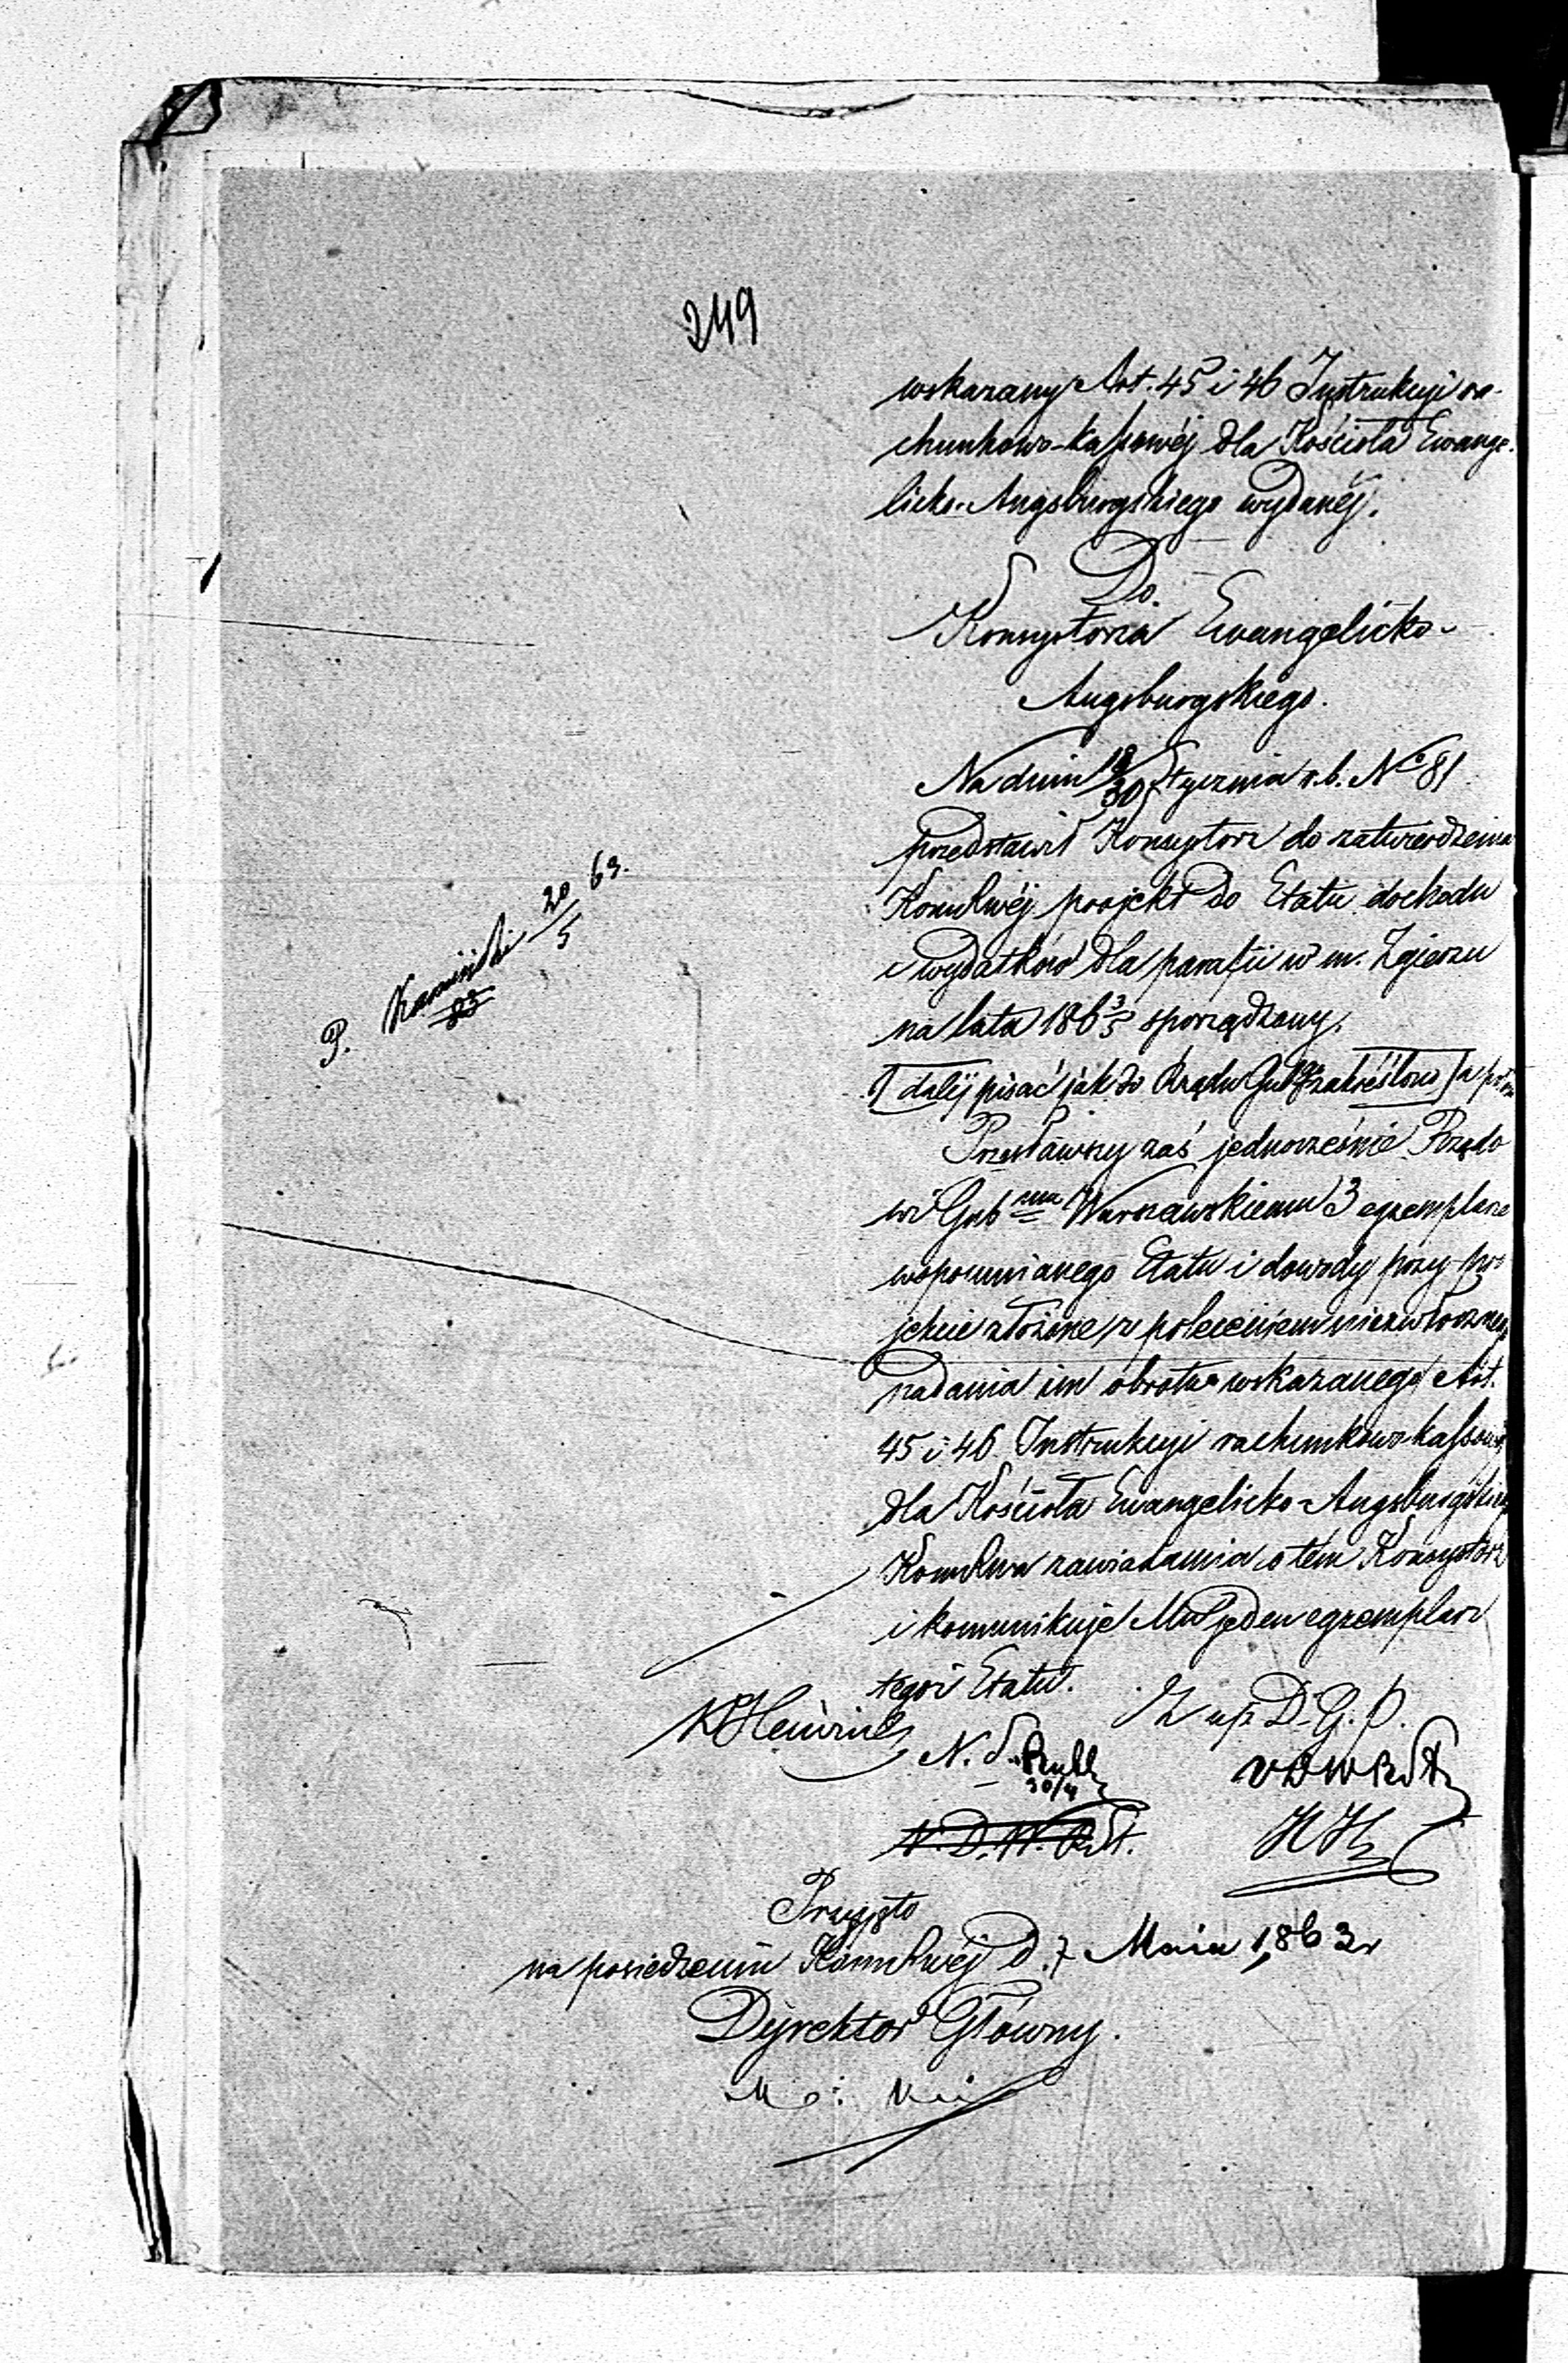 249
wskazany Art. 45 i 46 Instrukcyi ra-
chunkowo-kassowéj dla Kościoła Ewange-
licko-Augsburgskiego wydanéj.
Do
Konsystorza Ewangelicko-
Augsburgskiego.
Na dniu 18/30 Stycznia r.b. No 81
przedstawił Konsystorz do zatwierdzenia
projekt do Etatu dochodu
i wydatków dla parafii w m. Zgierzu
na lata 186 3/5 sporządzony.
[dalej pisać jak do Rządu Gub zakreślono] a
Przesławszy zaś jednocześnie Rządo
wi Gub Warszawskiemu 3 egzemplarze
wspomnianego Etatu i dowody przy pro
jekcie złożone, z poleceniem niezwłocznego
nadania im obrotu wskazanego Art.
45 i 46 Instrukcyi rachunkowo-kassowéj
dla Kościoła Ewangelicko-Augsburgskiego
zawiadamia o tém Konsystorz
i komunikuje Mu jeden egzemplarz
tegoż Etatu.
P. Kamiński 20/5 63.
83
Z up. D. G. P.
K Heinrich
N. S.
30/4
N. D. W.
Przyjęto
na posiedzeniu d. 7 Maia 1863 r
Dyrektor Główny.